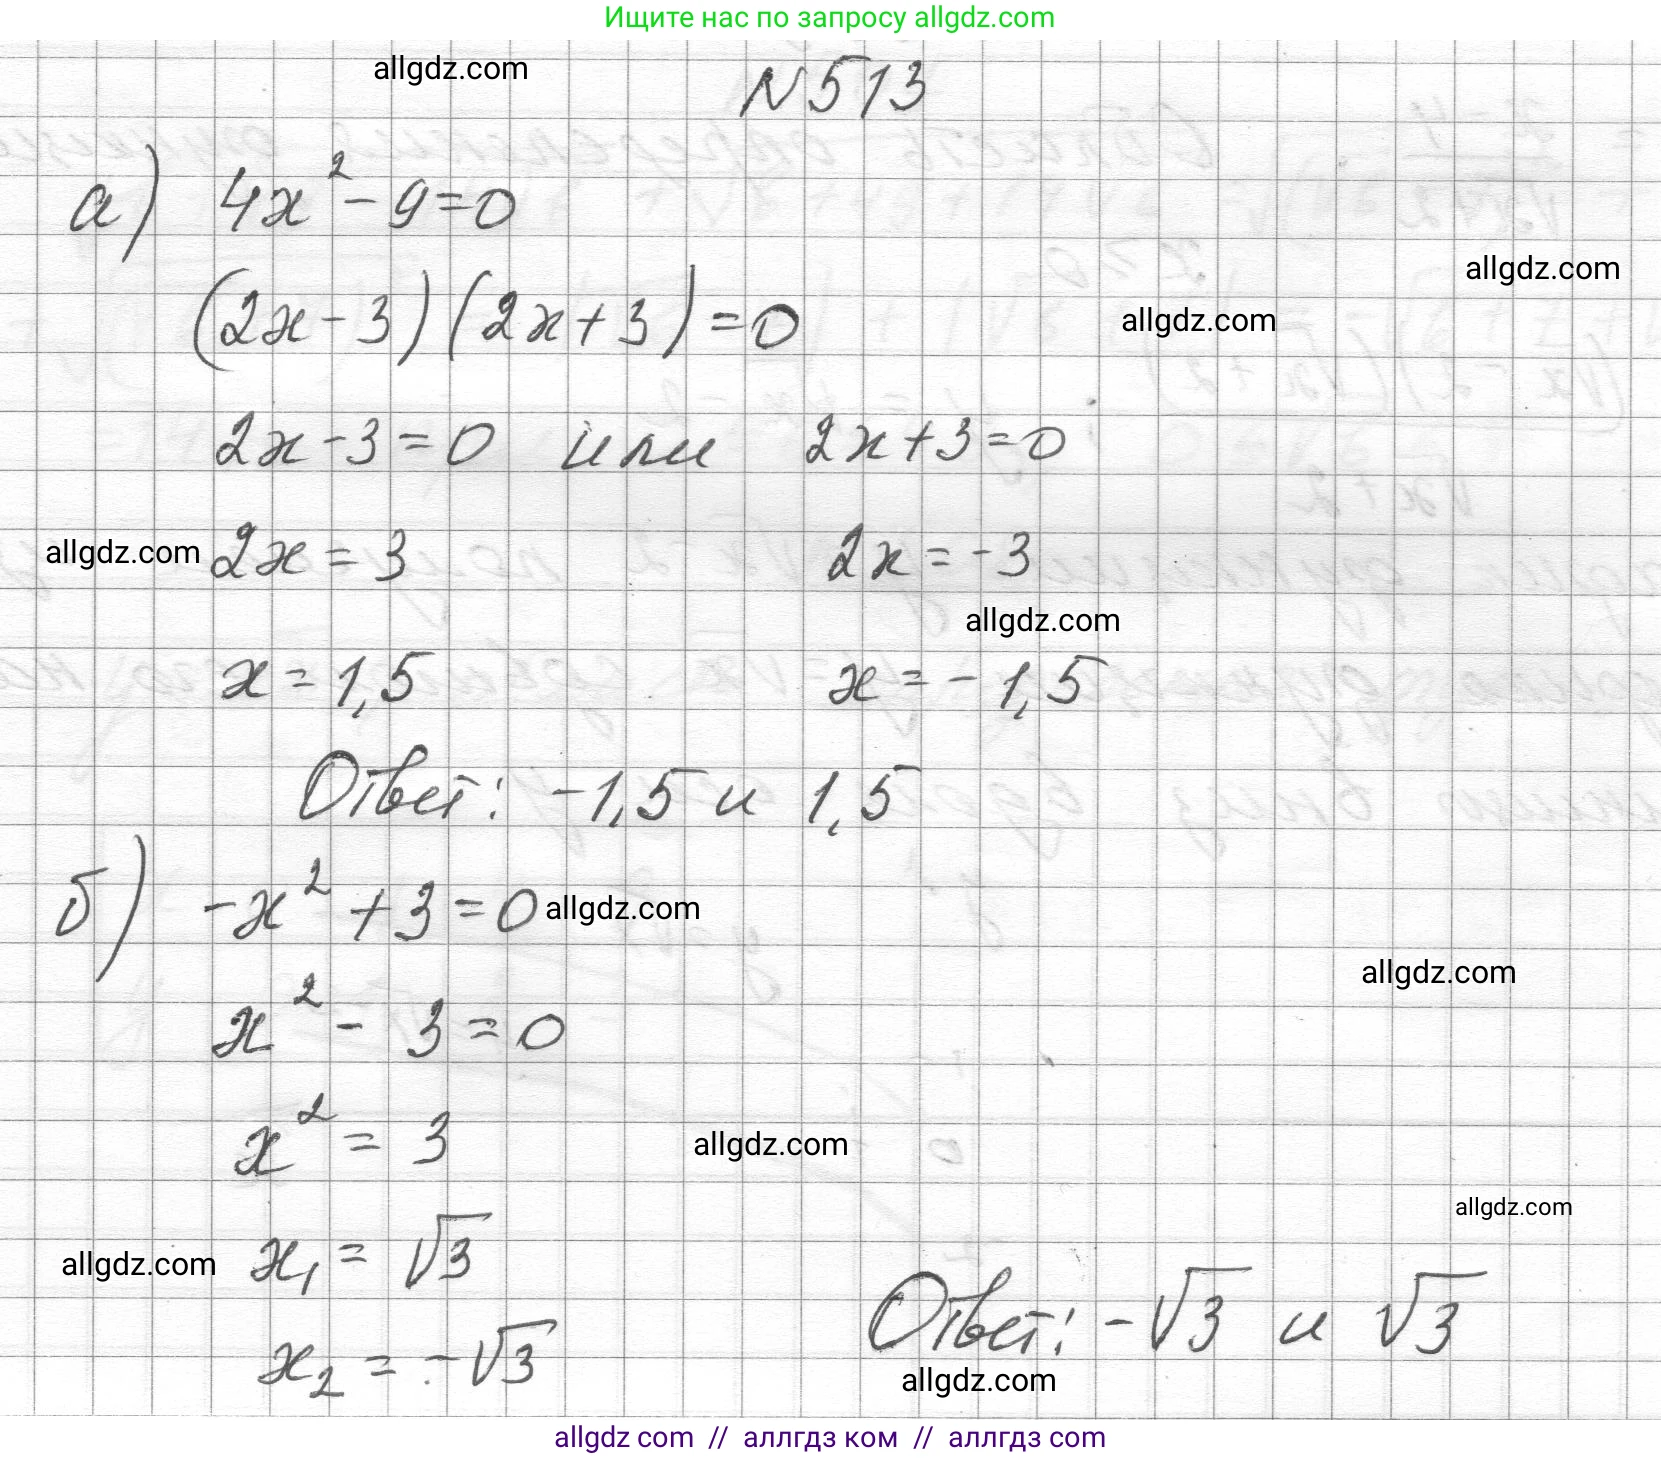 Ищите нас по запросу allgdz.com
allgdz.com
N 513
а) 4x² - 9 = 0
allgdz.com
(2x - 3)(2x + 3) = 0
allgdz.com
2x - 3 = 0 или 2x + 3 = 0
allgdz.com
2x = 3 2x = -3
allgdz.com
x = 1,5 x = -1,5
Ответ: -1,5 и 1,5
б) -x² + 3 = 0
allgdz.com
allgdz.com
x² - 3 = 0
x² = 3
allgdz.com
allgdz.com
allgdz.com
x₁ = √3
Ответ: -√3 и √3
x₂ = -√3
allgdz.com
allgdz com // аллгдз ком // аллгдз com